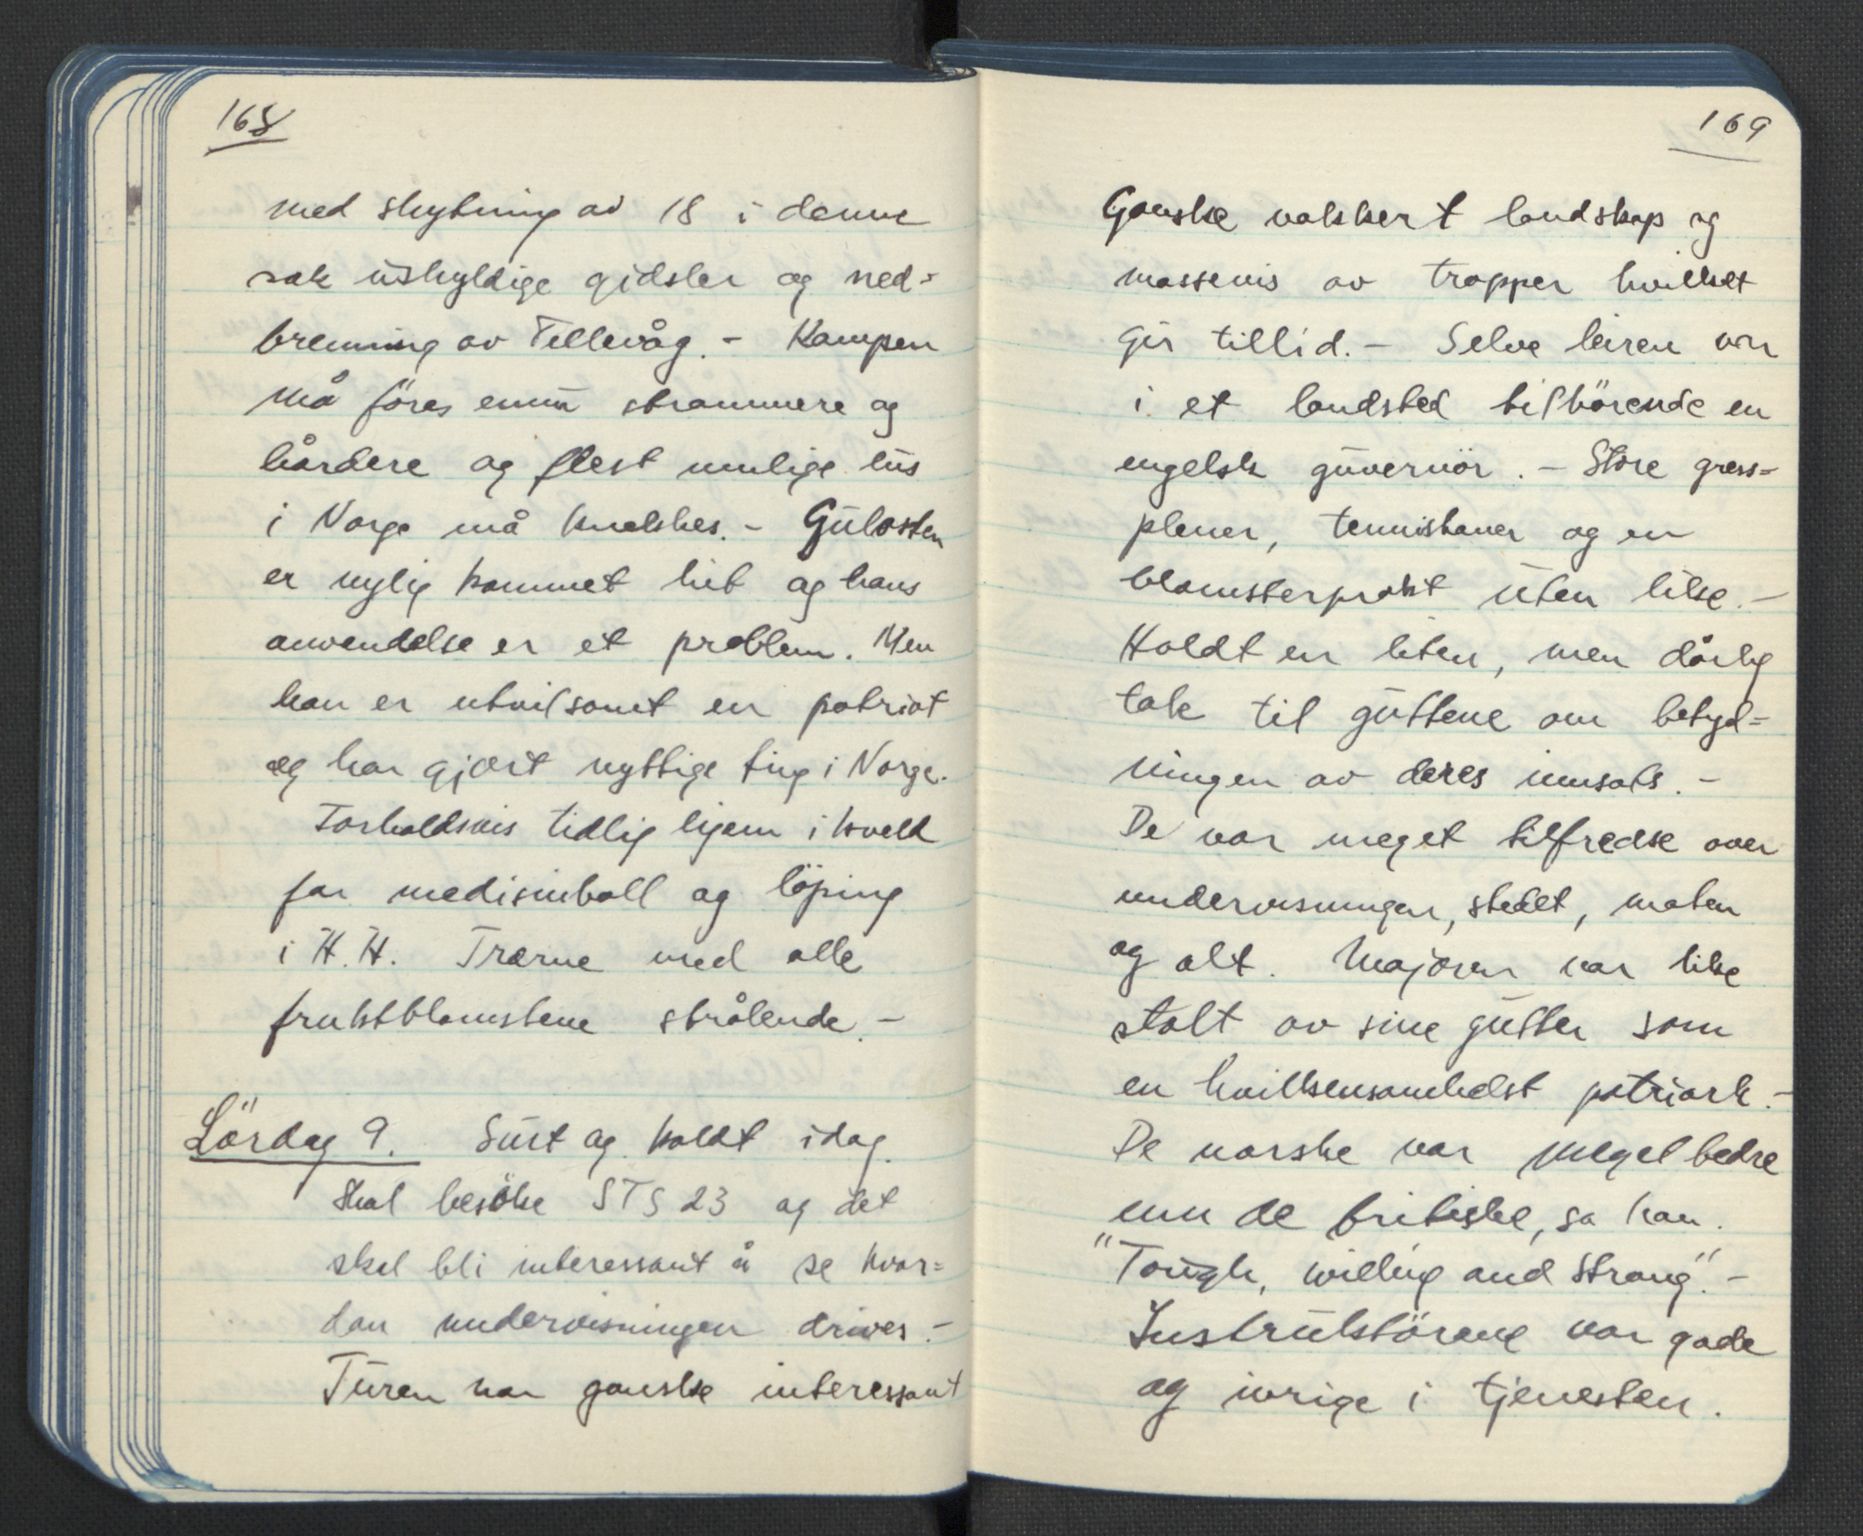 168
med skytning av 18 i denne
sak uskyldige gidsler og ned=
brenning av Tellevåg. - Kampen
må föres ennu strammere og
hårdere og flest mulige lus
i Norge må knekkes. - Gulosten
er nylig kommet hit og hans
anvendelse er et problem. Men
han er utvilsomt en patriot
og har gjort nyttige ting i Norge.
Forholdsvis tidlig hjem i kveld
for medisinball og löping
i H.H. Trærne med alle
fruktblomstene strålende. -
Lördag 9. Surt og koldt idag.
Skal besöke STS 23 og det
skal bli interessant å se hvor=
dan undervisningen drives. -
Turen var ganske interessant
169
Ganske vakkert landskap og
massevis av tropper hvilket
gir tillid. - Selve leiren var
i et landsted tilhörende en
engelsk guvernör. - Store gress=
plener, tennisbaner og en
blomsterprakt uten like. -
Holdt en liten, men dårlig
tale til guttene om betyd=
ningen av deres innsats. -
De var meget tilfredse over
undervisningen, stedet, maten
og alt. Majoren var like
stolt av sine gutter som
en hvilkensomhelst patriark. -
De norske var meget bedre
enn de britiske, sa han.
"Tough, willing and strong". -
Instruktörene var gode
og ivrige i tjenesten.